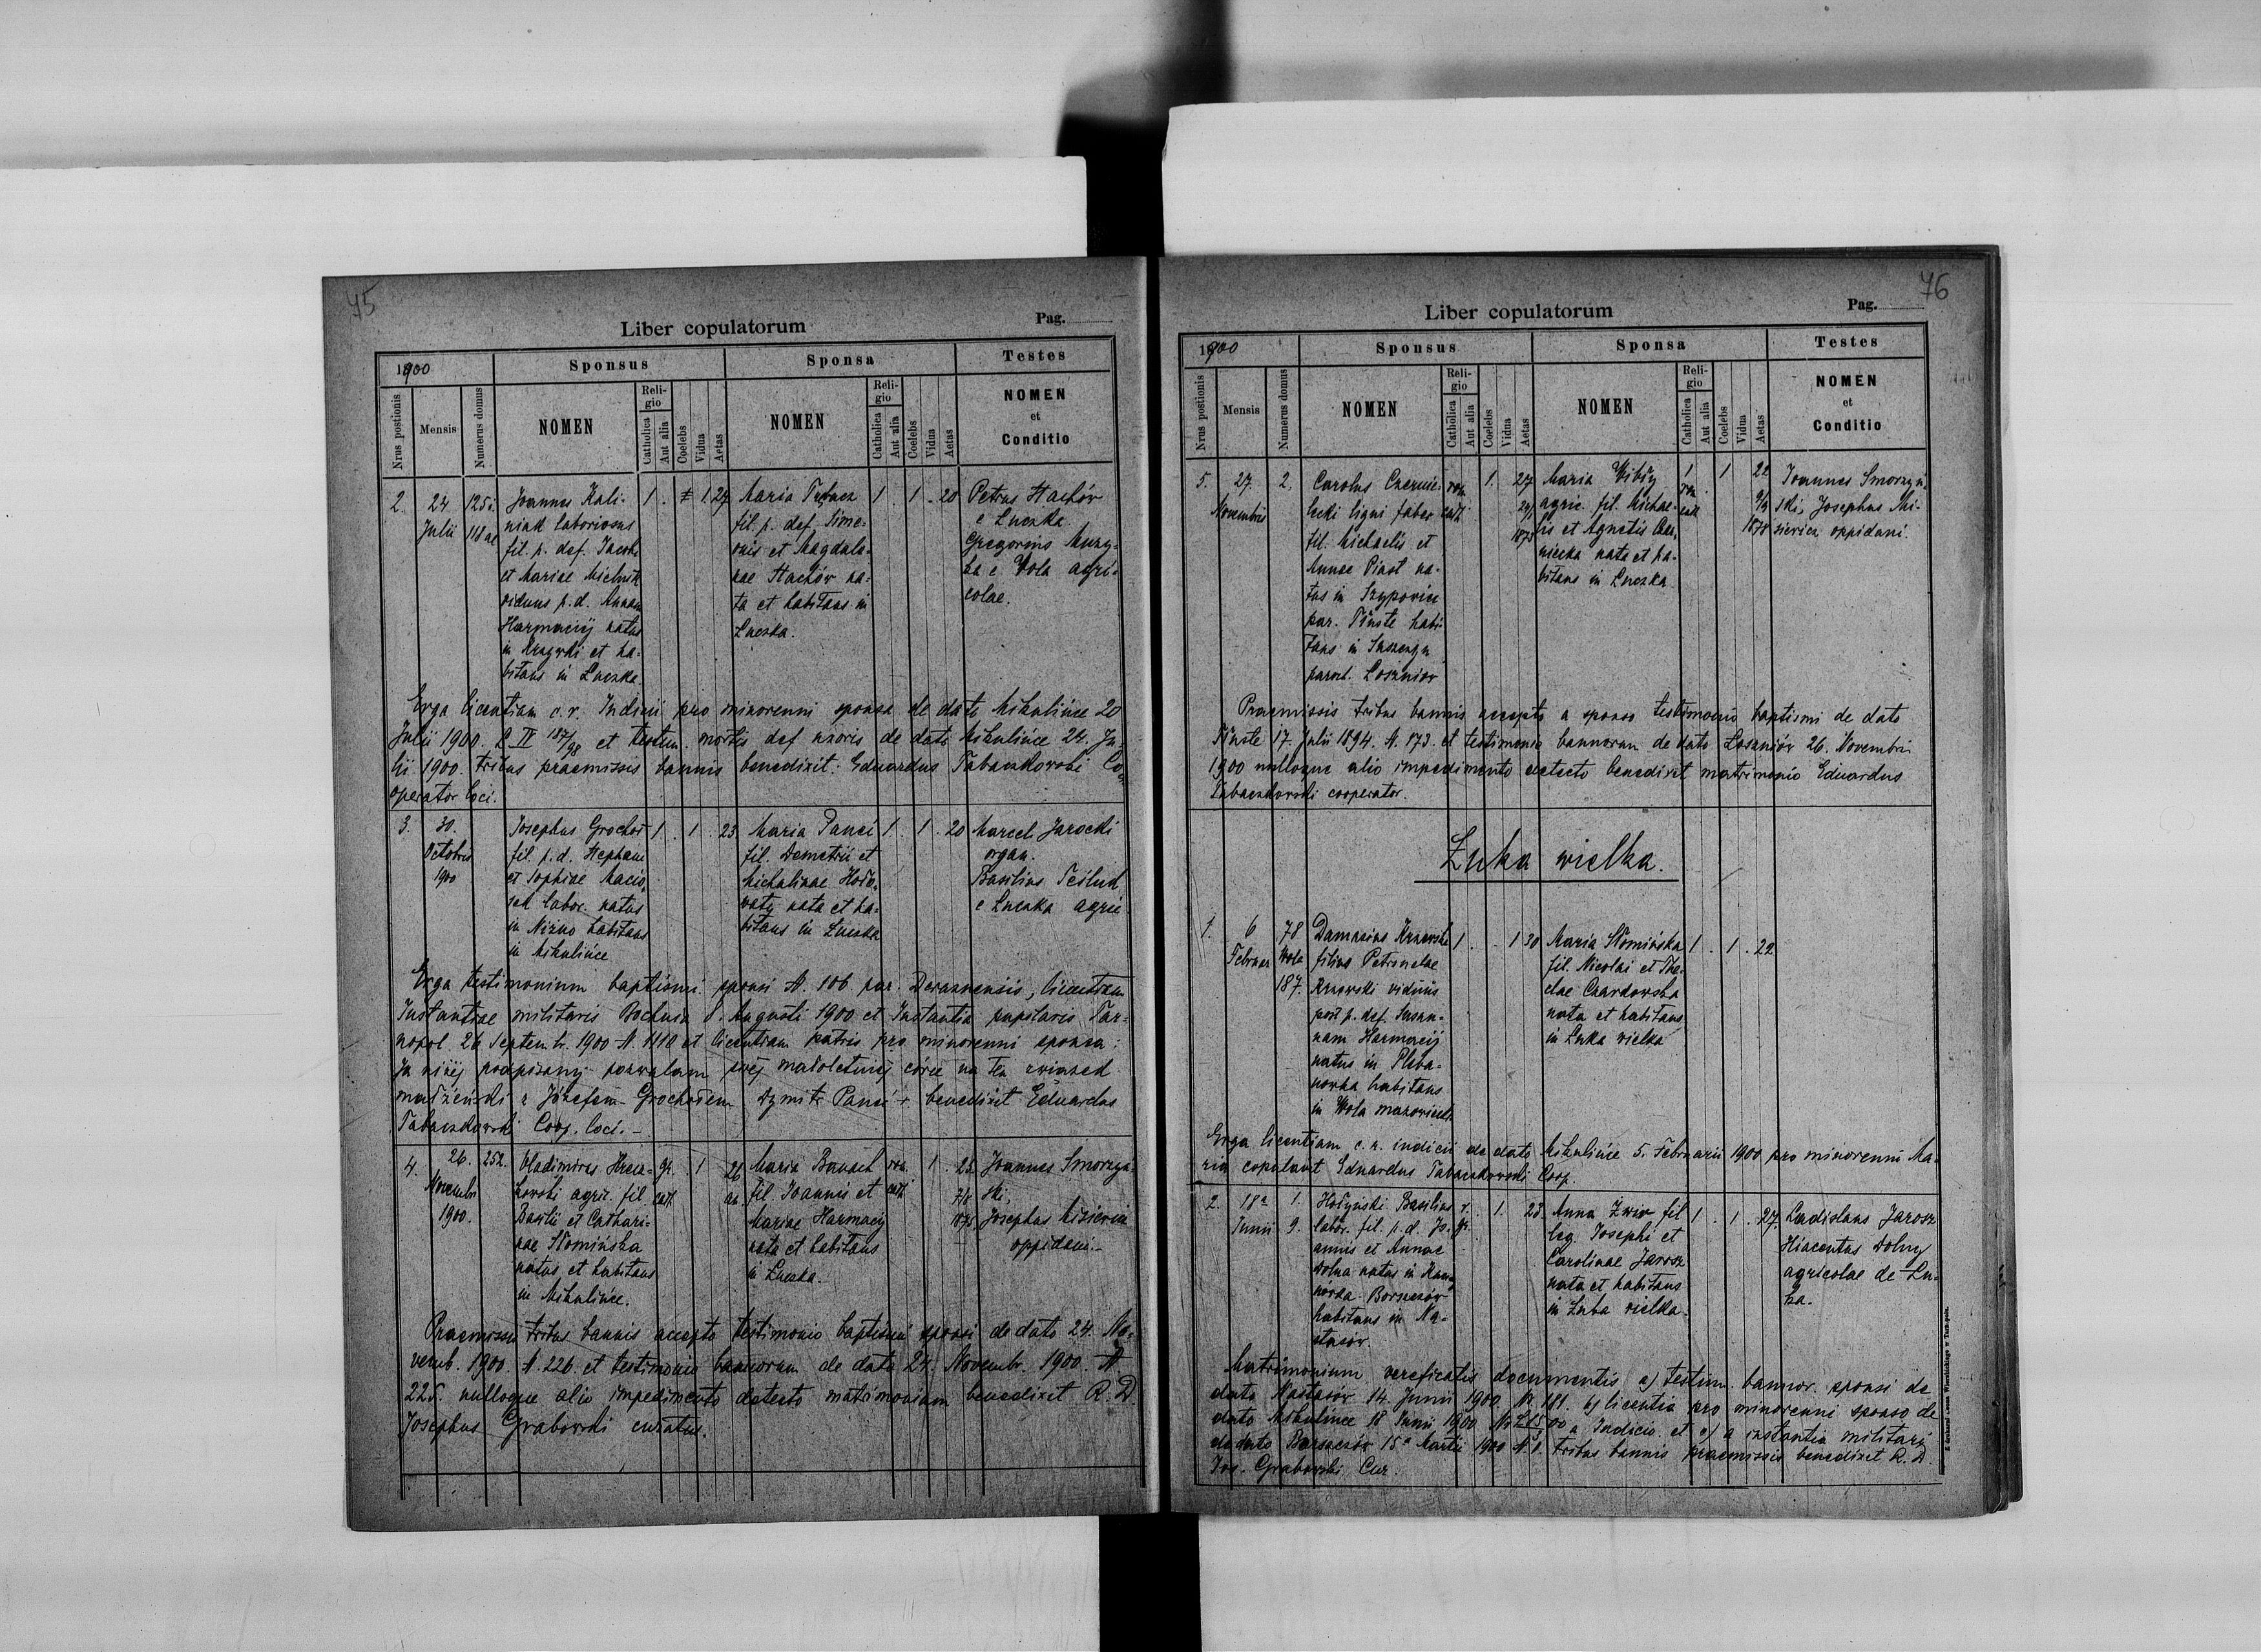 75
Liber copulatorum
Pag.
1900
Sponsus
Sponsa
Testes
Nrus postionis
Mensis
Numerus domus
NOMEN
Religio
Catholica
Aut alia
Coelebs
Vidua
Aetas
NOMEN
Religio
Catholica
Aut alia
Coelebs
Vidua
Aetas
NOMEN
et
Conditio
2. 24 Julii
118
Joannes Kali-
niak laboriosus
fil. p. def. Jacobi
et Mariae Mielnik
viduus p. d. Annam
Harmacij natus
in et ha-
bitans in Łuczka
1 . 1 27
Maria
fil. p. def. Sime-
onis et Magdale-
nae Stachów na-
ta et habitans in
Łuczka.
1 . 1 . 20
Petrus Stachów
e Łuczka
Gregorius Muzy-
ka e Wola agri-
colae.
Erga licentiam c. r. Indicii pro minorenni sponsa de dato Mikulińce 20
Julii 1900. et testim. mortis def uxoris de dato Mikulińce 24. Ju-
lii 1900. tribus praemissis bannis benedixit: Eduardus Tabaczkowski Co-
operator loci.
3. 30.
Octobris
1900
Josephus Grochol
fil. p. d. Stephani
et Sophiae
labor. natus
in habitans
in Mikulińce
1 . 1 . 23
Maria Panci
fil. Demetrii et
Michalinae Hoło-
waty nata et ha-
bitans in Łuczka
1 . 1 . 20
Marceli Jarocki
organ.
Basilius
e Łuczka agric
Erga testimonium baptismi sponsi N. 106 par. licentiam
Instantiae militaris Bochnia Augusti 1900 et Instantia pupilaris Tar-
nopol. 26 Septembr. 1900 N. 1110 et licentiam patris pro minorenni sponsa:
Ja niżej podpisany pozwalam swej małoletniej córce na ten związek
małżeński z Józefem Grocholem Dymitr Panci + benedixit Eduardus
Tabaczkowski Coop. loci. –
4. 26.
Novembr
1900.
252.
Vladimirus
agric. fil
Basilii et Cathari-
nae Słomińska
natus et habitans
in Mikulińce.
gr.
cath
1
26
an.
Maria Banach
fil. Joannis et
Mariae Harmacij
nata et habitans
in Łuczka.
rom.
cath
1 . 25.
1875
Joannes Smorzyń-
ski,
Josephus Misiewicz
oppidani. –
Praemissis tribus bannis accepto testimonio baptismi sponsi de dato 24. No-
vemb. 1900. N. 226. et testimonio bannorum de dato 24. Novembr. 1900. N
225. nulloque alio impedimento detecto matrimonium benedixit R. D.
Josephus Grabowski curatus.
76
Liber copulatorum
Pag.
1900
Sponsus
Sponsa
Testes
Nrus postionis
Mensis
Numerus domus
NOMEN
Religio
Catholica
Aut alia
Coelebs
Vidua
Aetas
NOMEN
Religio
Catholica
Aut alia
Coelebs
Vidua
Aetas
NOMEN
et
Conditio
5. 27.
Novembris
2.
Carolus Czernie-
lecki ligni faber
fil. Michaelis et
Annae Piast na-
tus in Szypowce
par. Tłuste habi-
tans in
paroch. Łoszniów
rom
cath
1.
27
Maria
agric. fil. Michae-
lis et Agnetis
nata et ha-
bitans in Łuczka.
1
rom
cath
1
22
9/9
1878
Joannes Smorzyń-
ski, Josephus Mi-
siewicz oppidani.
Praemissis tribus bannis accepto a sponso testimonio baptismi de dato
Tłuste 17. Julii 1894. N. 173. et testimonio bannorum de dato Łoszniów 26. Novembri
1900 nulloque alio impedimento detecto benedixit matrimonio Eduardus
Tabaczkowski cooperator.
Łuka wielka.
1. 6
Februar
78
Wola
187.
Damasius
filius Petronelae
viduus
post p. def. Susan-
nam Harmacij
natus in Pleba-
nowka habitans
in Wola mazowiecka
1 . . 1 30
Maria Słomińska
fil. Nicolai et The-
clae Czardowska
nata et habitans
in Łuka wielka
1 . 1 . 22
Erga licentiam c. r. indicii de dato Mikulińce 5. Februarii 1900 pro minorenni Ma-
ria copulavit Eduardus Tabaczkowski Coop.
2. 18a
Junii
1.
9.
Hołyński Basilius
labor. fil. p. d. Jo-
annis et Annae
Dolna natus in
habitans in Na-
stasów.
r.
gr.
1. 23.
Anna Zwir fil
leg. Josephi et
Carolinae Jarosz
nata et habitans
in Łuka wielka.
1 . 1 . 27.
Ladislaus Jarosz
Hiacentus Dolny
agricolae de Łu-
ka.
Matrimonium vereficatis documentis a) testim. bannor. sponsi de
dato Nastasów 14. Junii 1900. N. 181. b) licentia pro minorenni sponso de
dato Mikulince 18 Junii 1900 a Indicio. et c) a instantia militari
de dato 15a Martii 1900 N. 1. tribus bannis praemissis benedixit R. D.
Jos. Grabowski Cur.